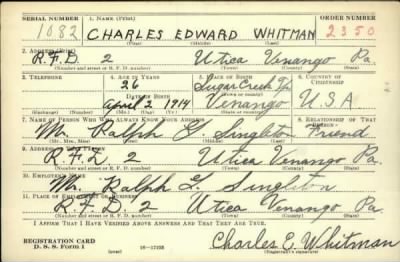 SERIAL NUMBER 1. NAME (Print) ORDER NUMBER
1082 CHARLES EDWARD WHITMAN 2350
(First) (Middle) (Last)
2. ADDRESS (Print)
R.F.D. 2 Utica Venango Pa.
(Number and street or R. F. D. number) (Town) (County) (State)
3. TELEPHONE 4. AGE IN YEARS 5. PLACE OF BIRTH 6. COUNTRY OF CITIZENSHIP
26 Sugar Creek Tp.
DATE OF BIRTH (Town or county)
April 2 1914 Venango U.S.A
(Exchange) (Number) (Mo.) (Day) (Yr.) (State or country)
7. NAME OF PERSON WHO WILL ALWAYS KNOW YOUR ADDRESS 8. RELATIONSHIP OF THAT PERSON
Mr. Ralph G. Singleton Friend
(Mr., Mrs., Miss) (First) (Middle) (Last)
9. ADDRESS OF THAT PERSON
R.F.D. 2 Utica Venango Pa.
(Number and street or R. F. D. number) (Town) (County) (State)
10. EMPLOYER'S NAME
Mr. Ralph G. Singleton
11. PLACE OF EMPLOYMENT OR BUSINESS
R.F.D. 2 Utica Venango Pa.
(Number and street or R. F. D. number) (Town) (County) (State)
I AFFIRM THAT I HAVE VERIFIED ABOVE ANSWERS AND THAT THEY ARE TRUE.
REGISTRATION CARD
D. S. S. Form 1 (over) 16-17105 Charles E. Whitman
(Registrant's signature)